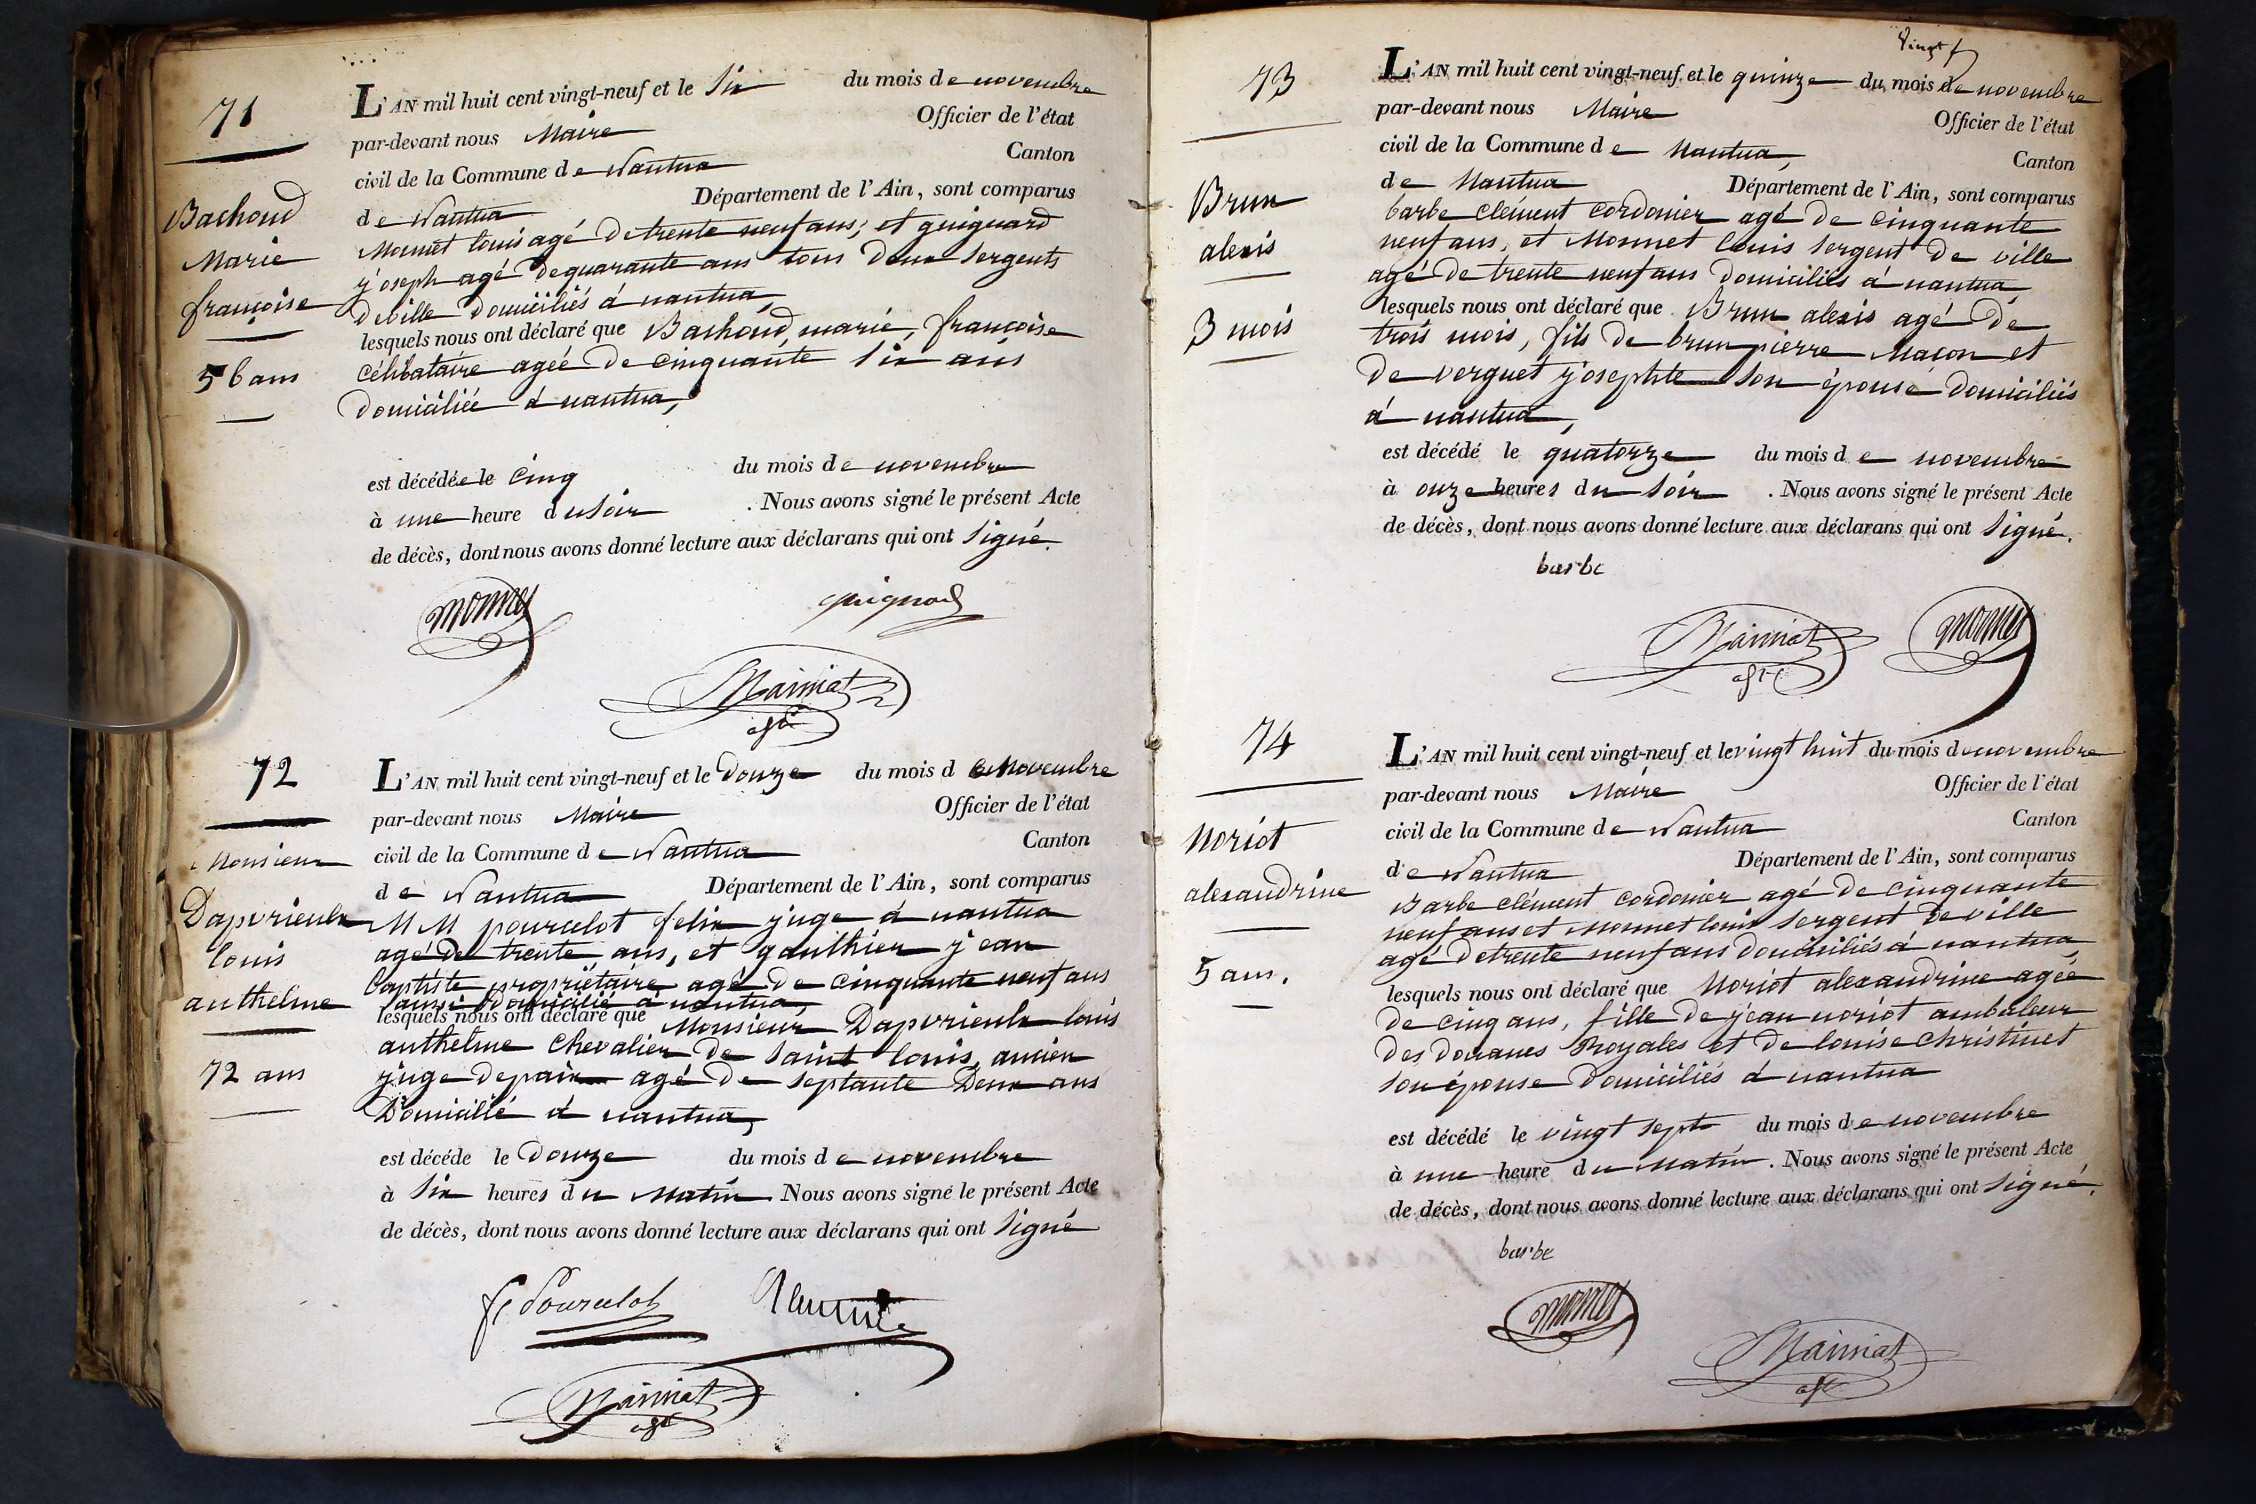 71
Bachoud
Marie
françoise
56 ans
L'AN mil huit cent vingt-neuf et le Six du mois de novembre
par-devant nous Maire Officier de l'état
civil de la Commune de Nantua Canton
de Nantua Département de l'Ain, sont comparus
Monnet louis agé de trente neuf ans, et guignard
joseph agé de quarante ans tous deux Sergents
de ville domiciliés à nantua,
lesquels nous ont déclaré que Bachoud, marie, françoise
célibataire agée de cinquante Six ans
domiciliée à nantua,
est décédée le Cinq du mois de novembre
à une heure du Soir . Nous avons signé le présent Acte
de décès, dont nous avons donné lecture aux déclarans qui ont Signé.
monnet guignard
72
Monsieur
Dapvrieulx
louis
anthelme
72 ans
L'AN mil huit cent vingt-neuf et le Douze du mois de Novembre
par-devant nous Maire Officier de l'état
civil de la Commune de Nantua Canton
de Nantua Département de l'Ain, sont comparus
MM pourcelot felix juge à nantua
agé de trente ans, et gauthier jean
baptiste propriétaire agé de cinquante neuf ans
aussi domicilié à nantua,
lesquels nous ont déclaré que Monsieur Dapvrieulx louis
anthelme Chevalier de Saint louis, ancien
juge de paix agé de Septante Deux ans
Domicilié à nantua,
est décédé le Douze du mois de novembre
à Six heures du Matin Nous avons signé le présent Acte
de décès, dont nous avons donné lecture aux déclarans qui ont Signé
f Pourcelot
Vingt
73
Brun
alexis
3 mois
L'AN mil huit cent vingt-neuf et le quinze du mois de novembre
par-devant nous Maire Officier de l'état
civil de la Commune de Nantua, Canton
de Nantua Département de l'Ain, sont comparus
barbe clément cordonier agé de cinquante
neuf ans, et Monnet louis Sergent de ville
agé de trente neuf ans domiciliés à nantua
lesquels nous ont déclaré que Brun alexis agé de
trois mois, fils de brun pierre Maçon et
de verguet josephte Son épouse domiciliés
à nantua,
est décédé le quatorze du mois de novembre
à onze heures du Soir . Nous avons signé le présent Acte
de décès, dont nous avons donné lecture aux déclarans qui ont Signé.
barbe
monnet
74
Noriot
alexandrine
5 ans.
L'AN mil huit cent vingt-neuf et le vingt huit du mois de novembre
par-devant nous Maire Officier de l'état
civil de la Commune de Nantua Canton
de Nantua Département de l'Ain, sont comparus
Barbe clément cordonier agé de cinquante
neuf ans et Monnet louis Sergent de ville
agé de trente neuf ans domiciliés à nantua,
lesquels nous ont déclaré que Noriot alexandrine agée
de cinq ans, fille de jean noriot ambuleur
des douanes Royales et de louise christinet
Son épouse Domiciliés à nantua
est décédé le vingt Sept du mois de novembre
à une heure du Matin . Nous avons signé le présent Acte
de décès, dont nous avons donné lecture aux déclarans qui ont Signé.
barbe
monnet